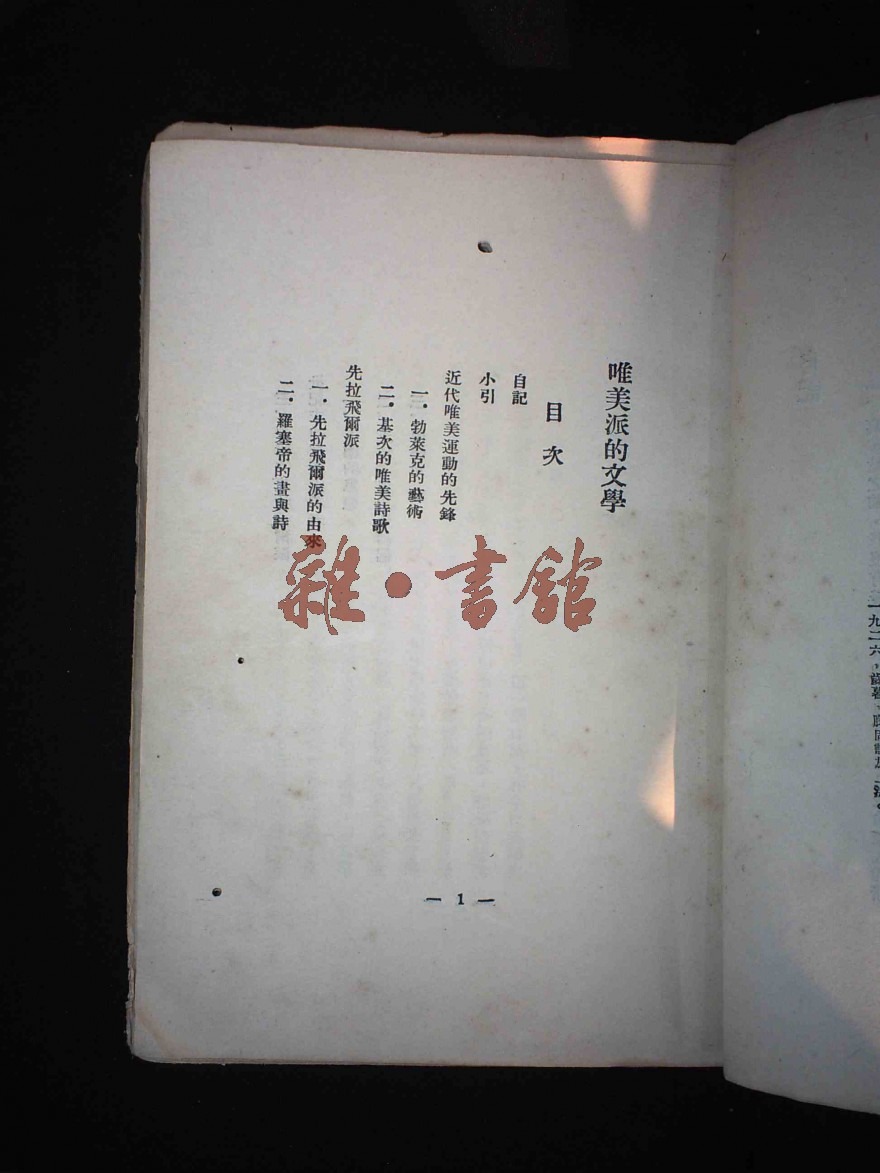 唯美派的文學
目次
自記
小引
近代唯美運動的先鋒
一．勃萊克的藝術
二．基次的唯美詩歌
先拉飛爾派
一．先拉飛爾派的由來
二．羅塞帝的畫與詩
— 1 —
雜·書館
一九二六，